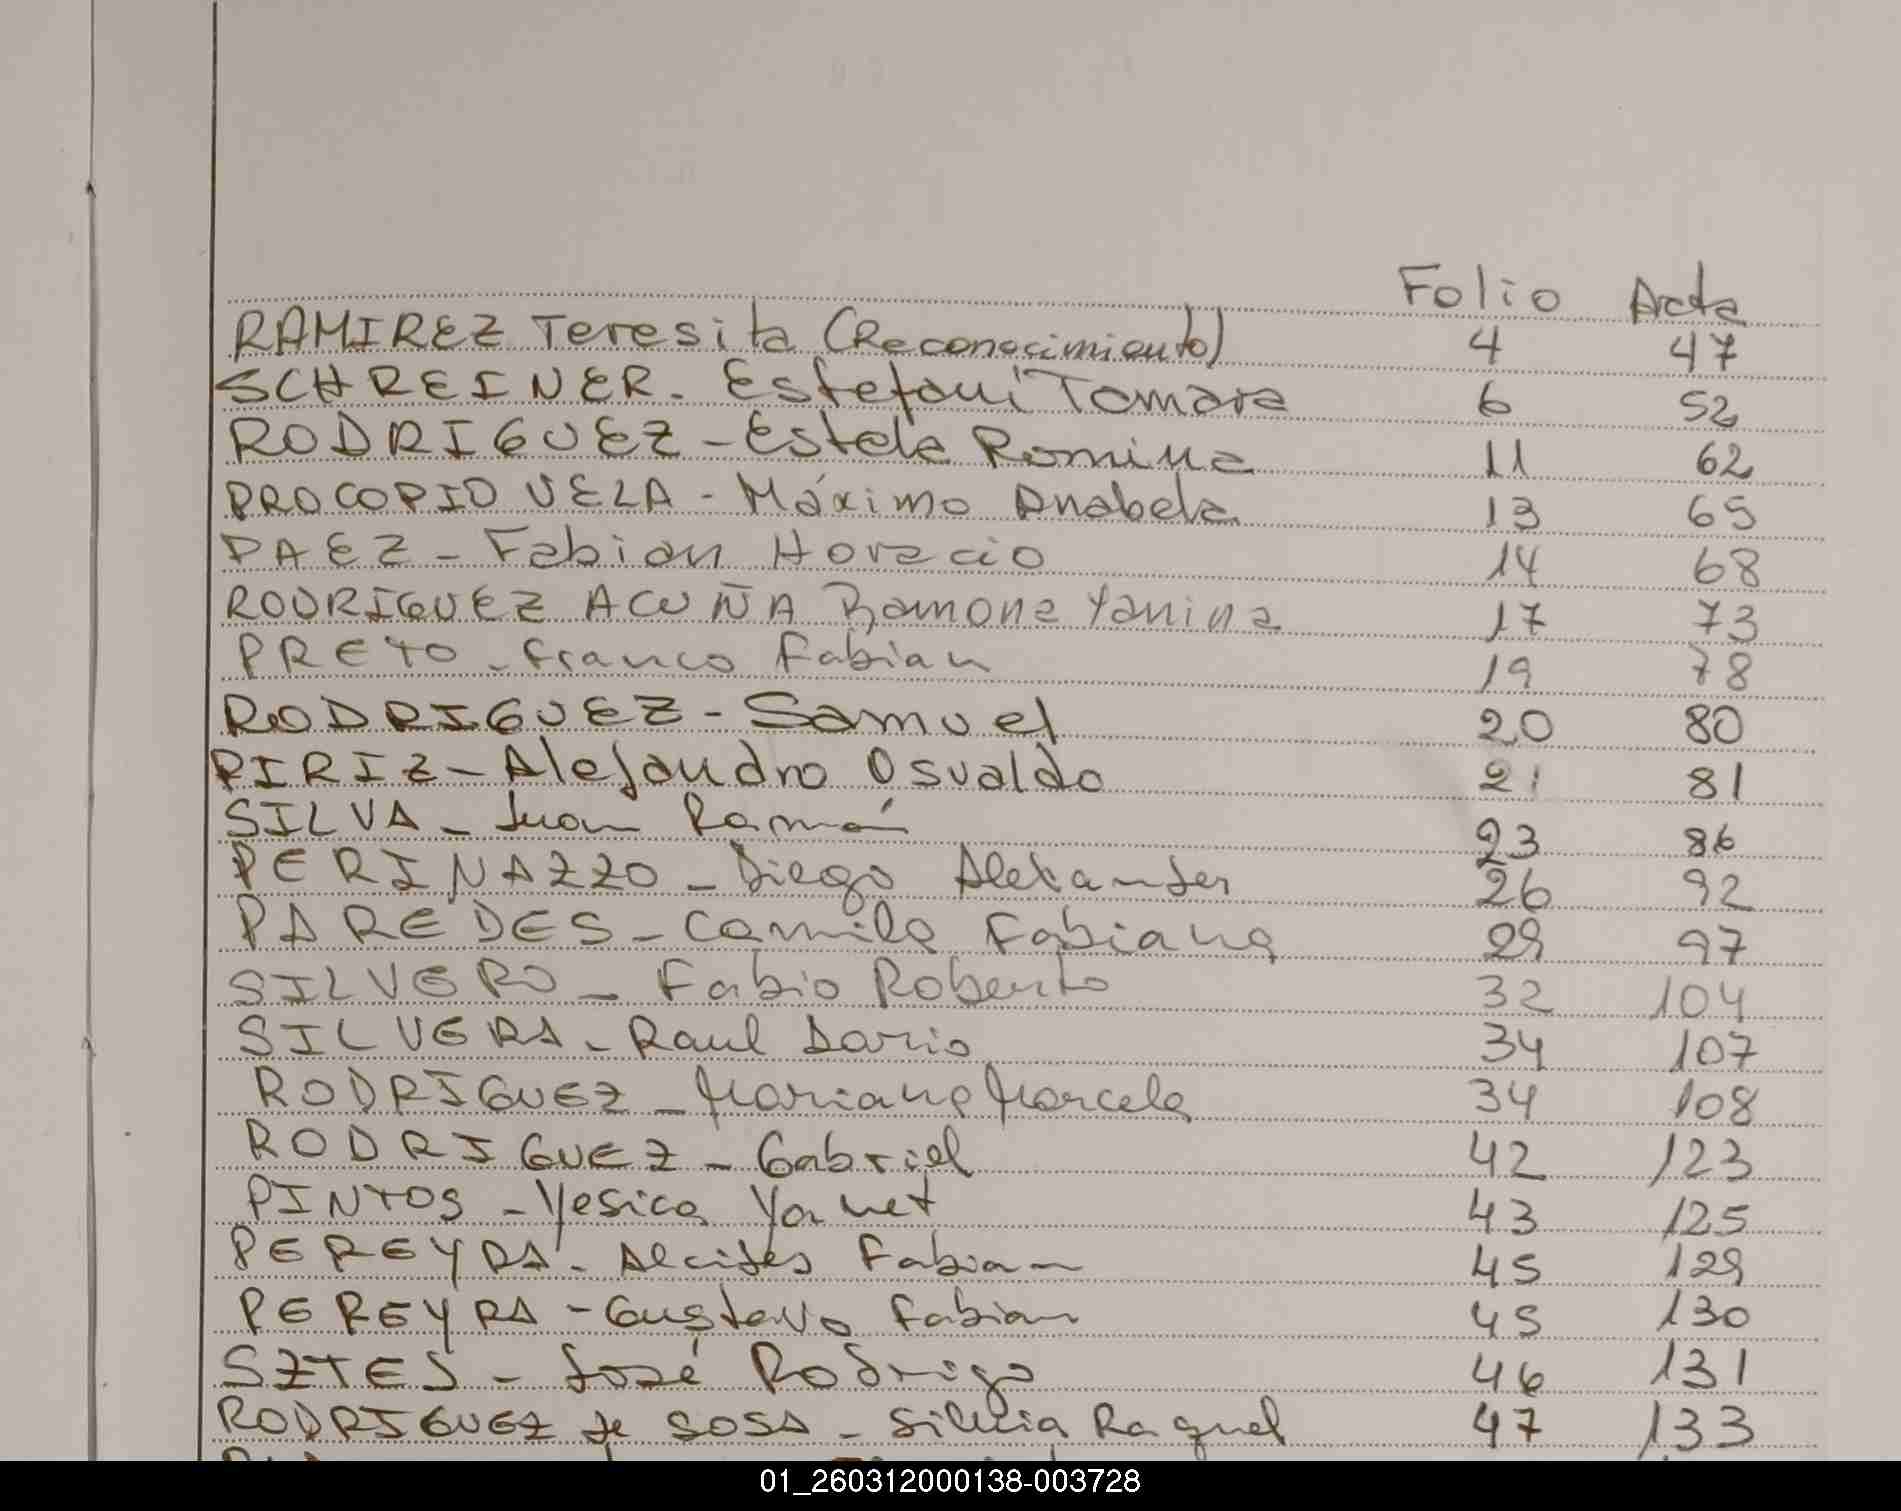 Folio Acta
RAMIREZ Teresita (Reconocimiento) 4 47
SCHREINER. Estefani Tamara 6 52
RODRIGUEZ - Estela Romina 11 62
PROCOPIO VELA - Máximo Anabela 13 65
PAEZ - Fabian Horacio 14 68
RODRIGUEZ ACUÑA Ramona Yanina 17 73
PRETO - Franco Fabian 19 78
RODRIGUEZ - Samuel 20 80
PIRIZ - Alejandro Osvaldo 21 81
SILVA - Juan Ramón 23 86
PERINAZZO - Diego Alexander 26 92
PAREDES - Camila Fabiana 29 97
SILVERO - Fabio Roberto 32 104
SILVERA - Raul Dario 34 107
RODRIGUEZ - Mariana Marcela 34 108
RODRIGUEZ - Gabriel 42 123
PINTOS - Yesica Yanet 43 125
PEREYRA - Alcides Fabian 45 129
PEREYRA - Gustavo Fabian 45 130
SZTES - José Rodrigo 46 131
RODRIGUEZ de SOSA - Silvia Raquel 47 133
01_260312000138-003728